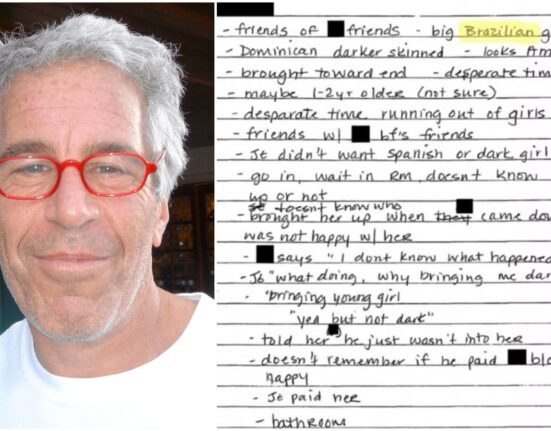 - friends of friends - big Brazilian g
- Dominican darker skinned - looks Am
- brought toward end - desperate tim
- maybe 1-2yr older (not sure)
- desparate time running out of girls
- friends w/ bf's friends
- JE didn't want Spanish or dark girl
- go in, wait in RM, doesn't know
up or not
JE doesnt know who
- brought her up when they came dow
was not happy w/ her
- says "I dont know what happened
- JE "what doing, why bringing me dar
- "bringing young girl
"yea but not dark"
- told her he just wasn't into her
- doesn't remember if he paid blo
happy
- JE paid her
- bathroom